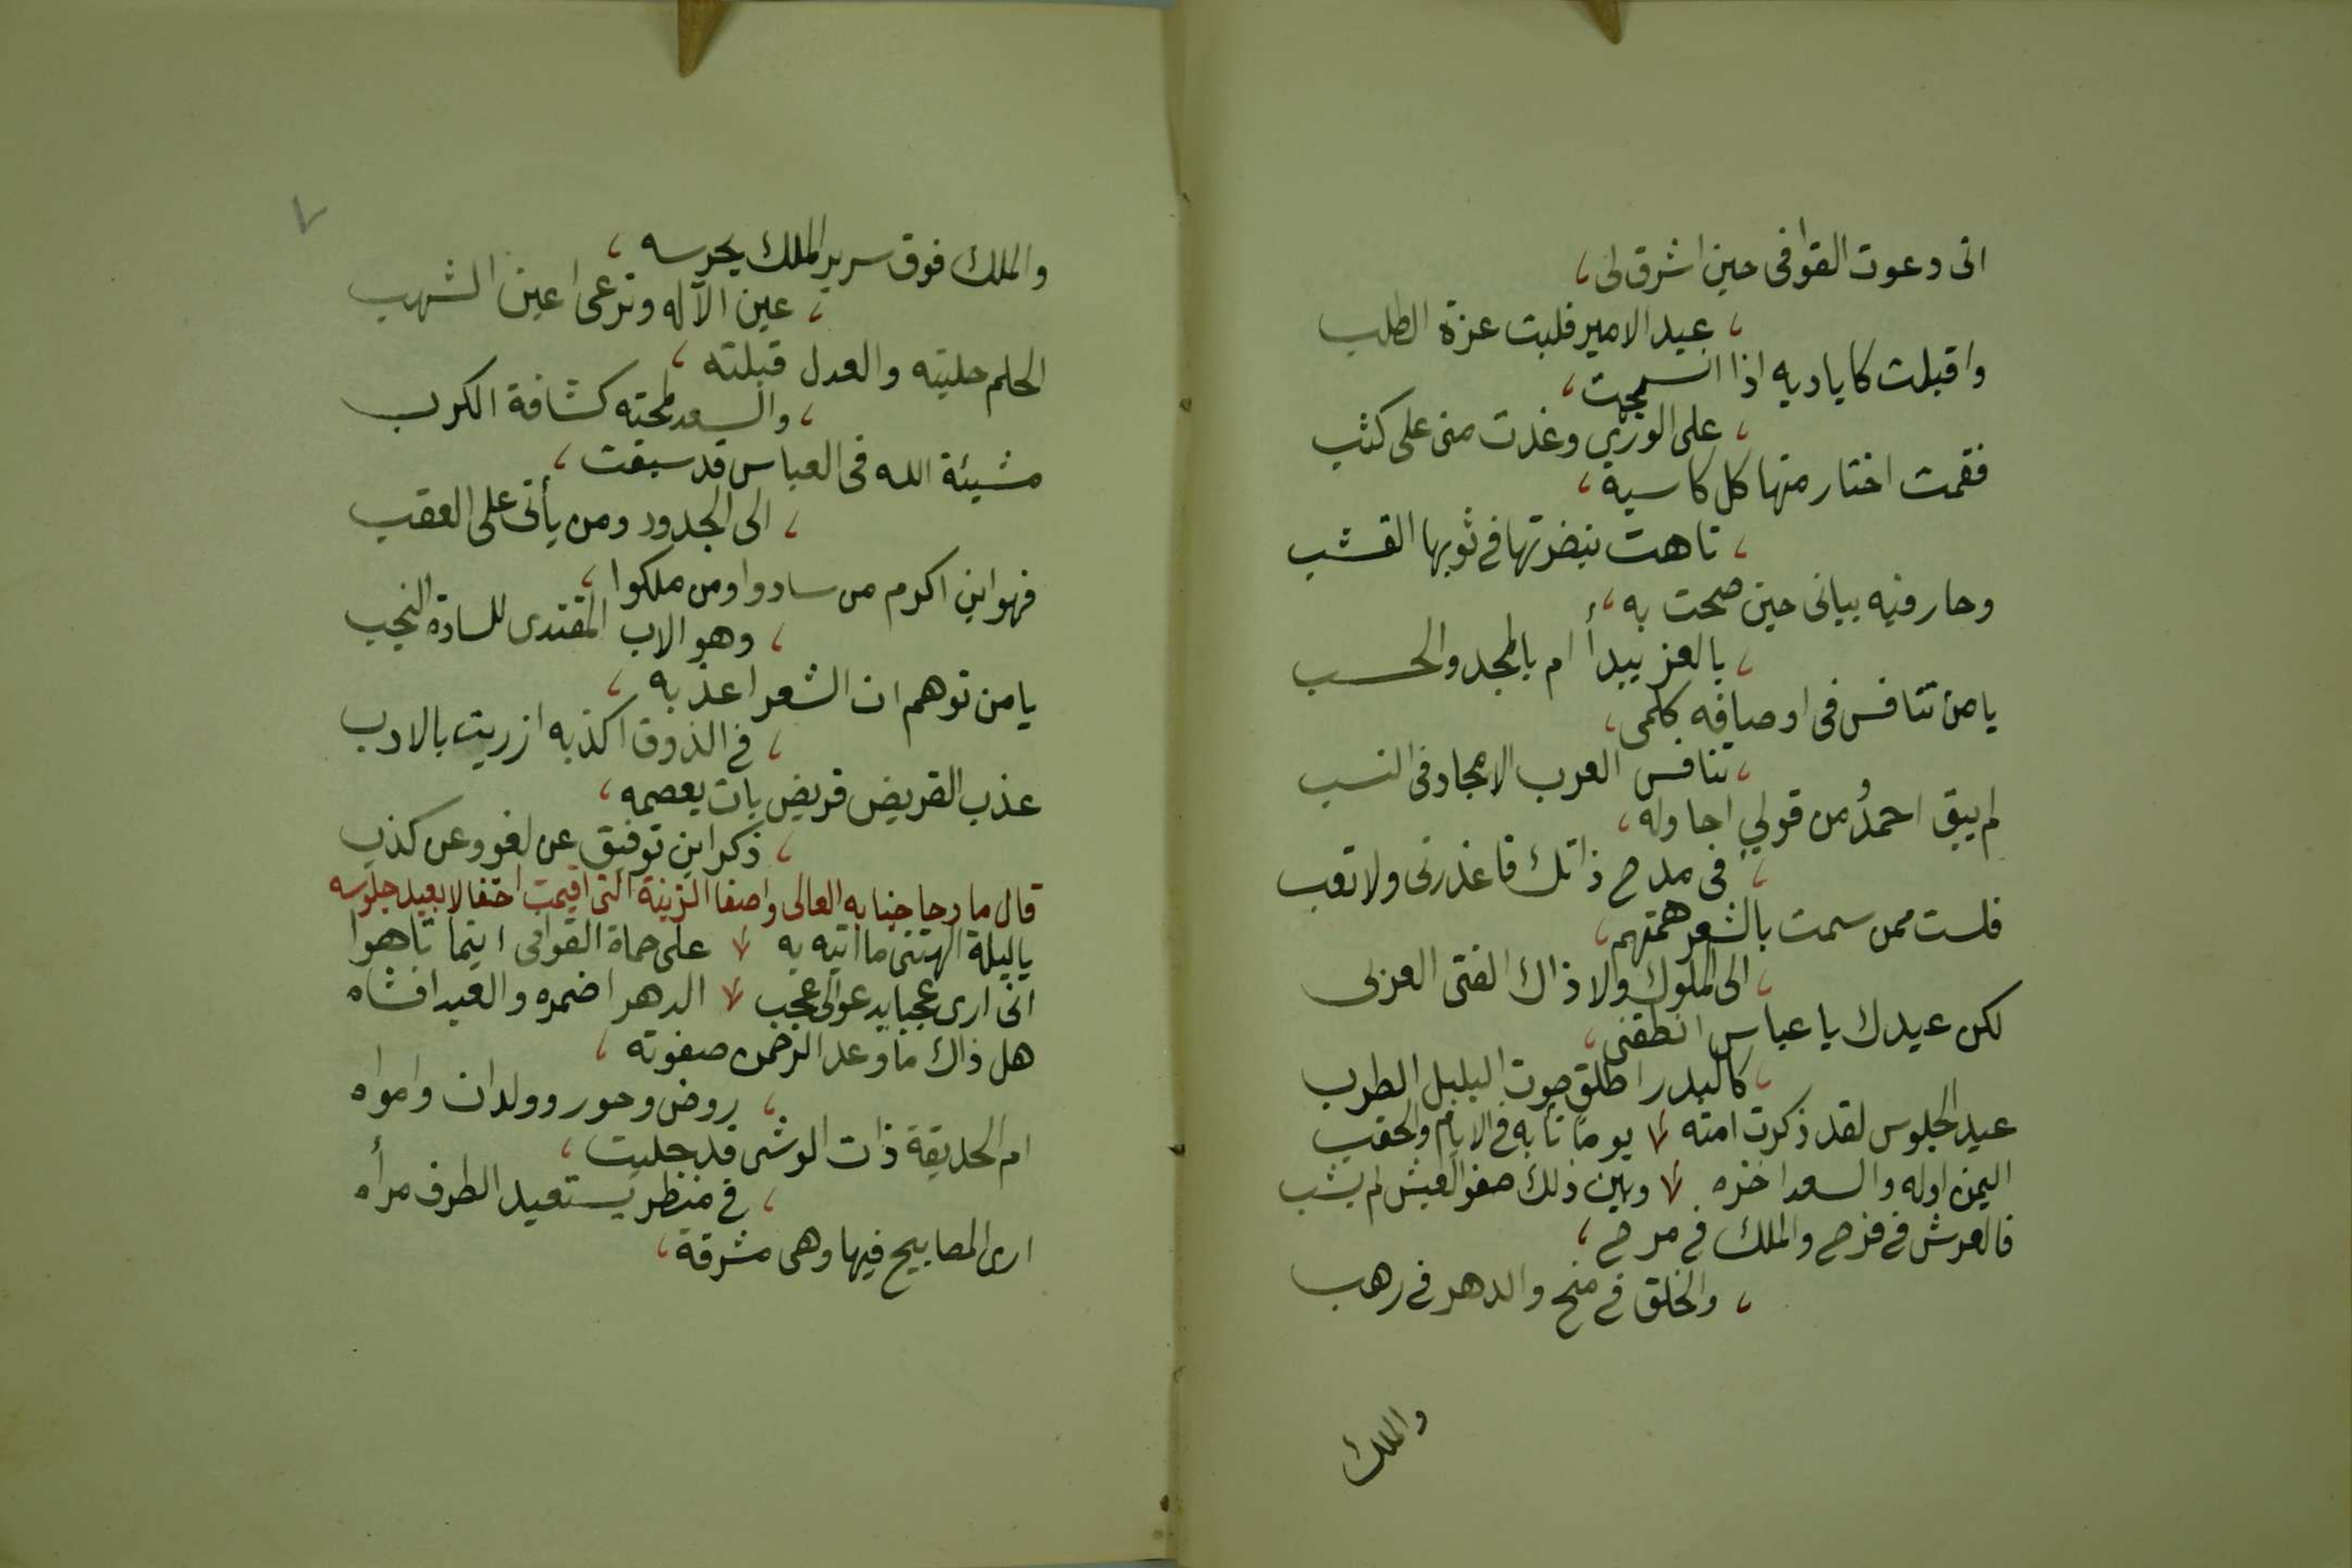 انى دعوت القوافى حين اشرق لى
عيد الامير فلبت عزة الطلب
واقبلت كاياديه اذا انسجمت
على الورى وغدت منى على كثب
فقمت اختار منها كل كاسية
تاهت بنضرتها فى ثوبها القشب
وحار فيه بيانى حين صحت به
بالعز يبدأ ام بالمجد والحسب
يا من تنافس فى اوصافه كلمى
تنافس العرب الامجاد فى النسب
لم يبق احمدُ من قولى اجاوله
فى مدح ذاتك فاعذرنى ولا تعب
فلست ممن سمت بالشعر همتهم
الى الملوك ولا ذاك الفتى العربى
لكن عيدك يا عباس انطقنى
كالبدر اطلق صوت البلبل الطرب
عيد الجلوس لقد ذكرت امته يوما تأ به فى الايام والحقب
اليمن اوله والسعد اخره وبين ذلك صفو العيش لم يشب
فالعرش فى فرح والملك فى مرح
والخلق فى منح والدهر فى رهب
والملك
٧
والملك فوق سرير الملك يحرسه
عين الآله وترعى اعين الشهب
الحلم حليته والعدل قبلته
والسعد لمحته كشافة الكرب
مشيئة الله فى العباس قد سبقت
الى الجدود ومن يأتى على العقب
فهو ابن اكرم من سادوا ومن ملكوا
وهو الاب المفتدى للسادة النجب
يا من توهم ان الشعر اعذبه
فى الذوق اكذبه ازريت بالادب
عذب القريض قريض بات يعصمه
ذكر ابن توفيق عن لغو وعن كذب
قال مادحا جنابه العالى واصفا الزينة التى اقيمت احتفالا بعيد جلوسه
يا ليلة الهتنى ما اتيه به على حماة القوافى اينما تاهوا
انى ارى عجبا يدعو الى عجب الدهر اضمره والعيد افشاه
هل ذاك ما وعد الرحمن صفوته
روض وحور وولدان وامواه
ام الحديقة ذات الوشى قد جليت
فى منظر يستعيد الطرف مرأه
ارى المصابيح فيها وهى مشرقة